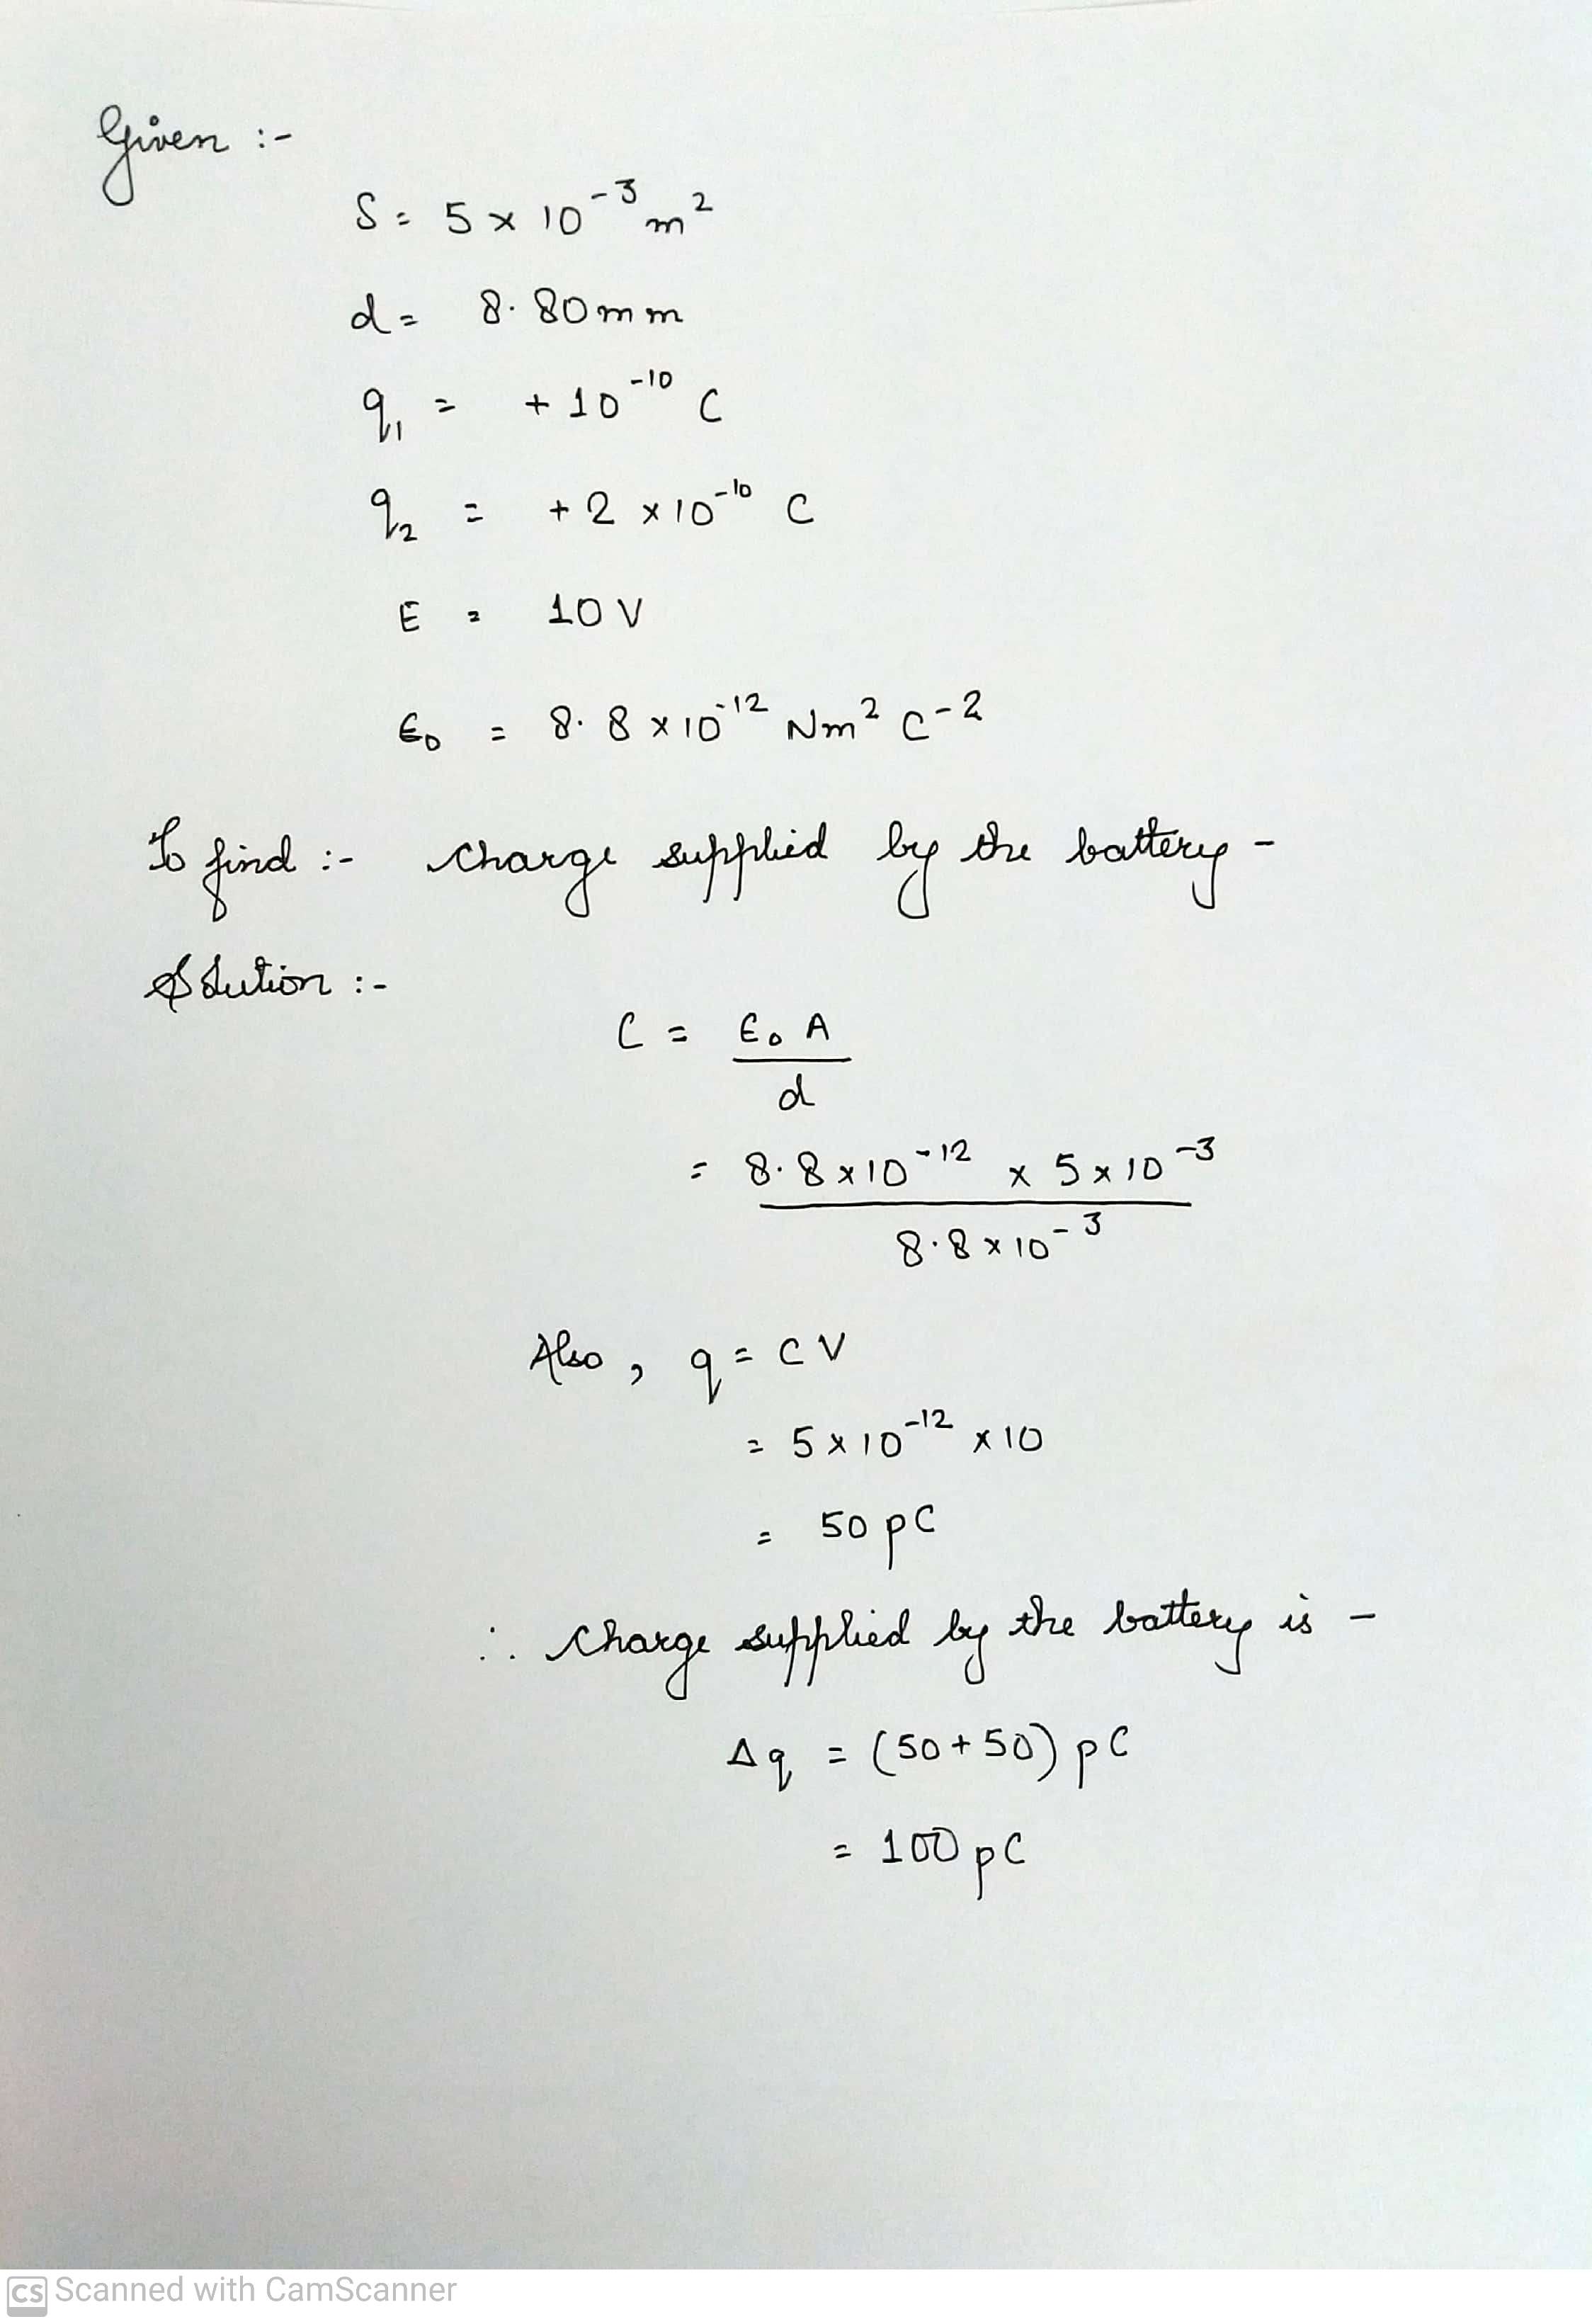 Given :-
S = 5 × 10⁻³ m²
d = 8.80 mm
q₁ = + 10⁻¹⁰ C
q₂ = + 2 × 10⁻¹⁰ C
E = 10 V
ϵ₀ = 8.8 × 10⁻¹² Nm² C⁻²
To find :- charge supplied by the battery -
Solution :-
C = ϵ₀ A
d
= 8.8 × 10⁻¹² × 5 × 10⁻³
8.8 × 10⁻³
Also, q = C V
= 5 × 10⁻¹² × 10
= 50 pC
∴ charge supplied by the battery is -
Δq = (50 + 50) pC
= 100 pC
CS Scanned with CamScanner